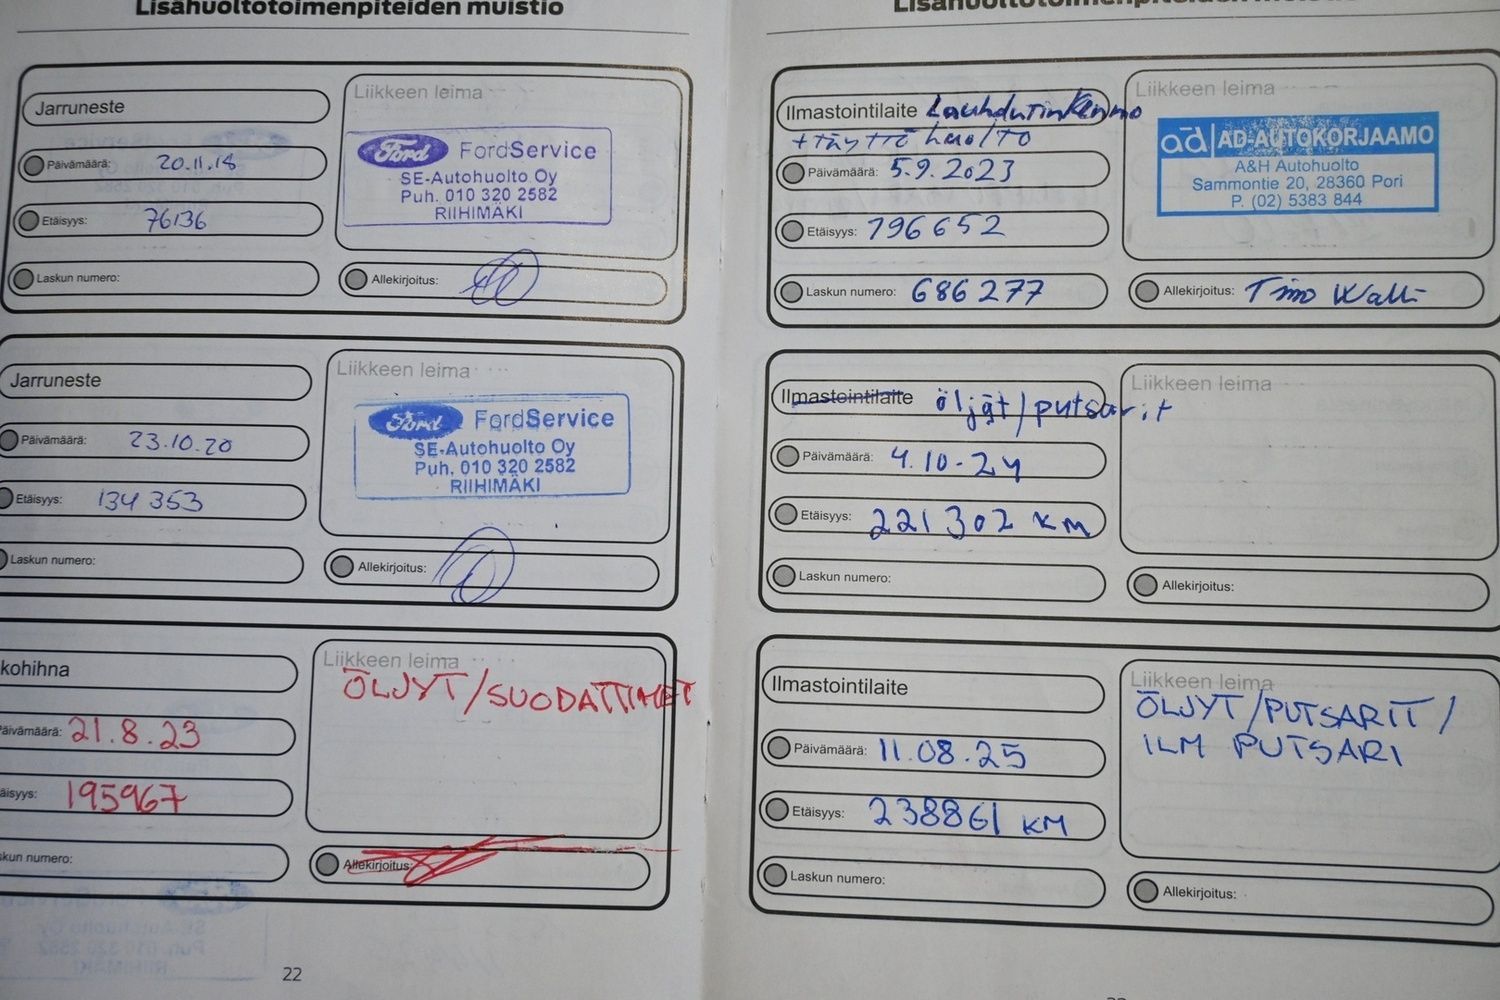 Lisähuoltotoimenpiteiden muistio
Jarruneste
Liikkeen leima
Päivämäärä: 20.11.18
Etäisyys: 76136
Laskun numero:
Ford FordService
SE-Autohuolto Oy
Puh. 010 320 2582
RIIHIMÄKI
Allekirjoitus:
Jarruneste
Liikkeen leima
Päivämäärä: 23.10.20
Etäisyys: 134 353
Laskun numero:
Ford FordService
SE-Autohuolto Oy
Puh. 010 320 2582
RIIHIMÄKI
Allekirjoitus:
kohihna
Liikkeen leima
äivämäärä: 21.8.23
äisyys: 195967
skun numero:
ÖLJYT/SUODATTIMET
Allekirjoitus:
22
Lisähuoltotoimenpiteiden
Ilmastointilaite Lauhdutinkenno
+ täyttö huolto
Päivämäärä: 5.9.2023
Etäisyys: 196652
Laskun numero: 686277
Liikkeen leima
ad AD-AUTOKORJAAMO
A&H Autohuolto
Sammontie 20, 28360 Pori
P. (02) 5383 844
Allekirjoitus: Timo
Ilmastointilaite öljyt/putsarit
Päivämäärä: 4.10-24
Etäisyys: 221302 km
Laskun numero:
Liikkeen leima
Allekirjoitus:
Ilmastointilaite
Päivämäärä: 11.08.25
Etäisyys: 238861 KM
Laskun numero:
Liikkeen leima
ÖLJYT/PUTSARIT/
ILM PUTSARI
Allekirjoitus: